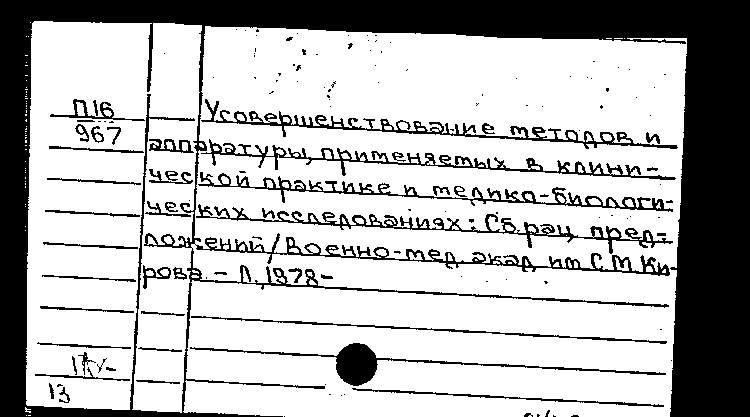 П16
967
Усовершенствование методов и
аппаратуры, применяемых в клини-
ческой практике и медико-биологи-
ческих исследованиях: Сб. рац. пред-
ложений / Военно-мед. акад. им С.М. Ки-
рова. – Л., 1978–
13